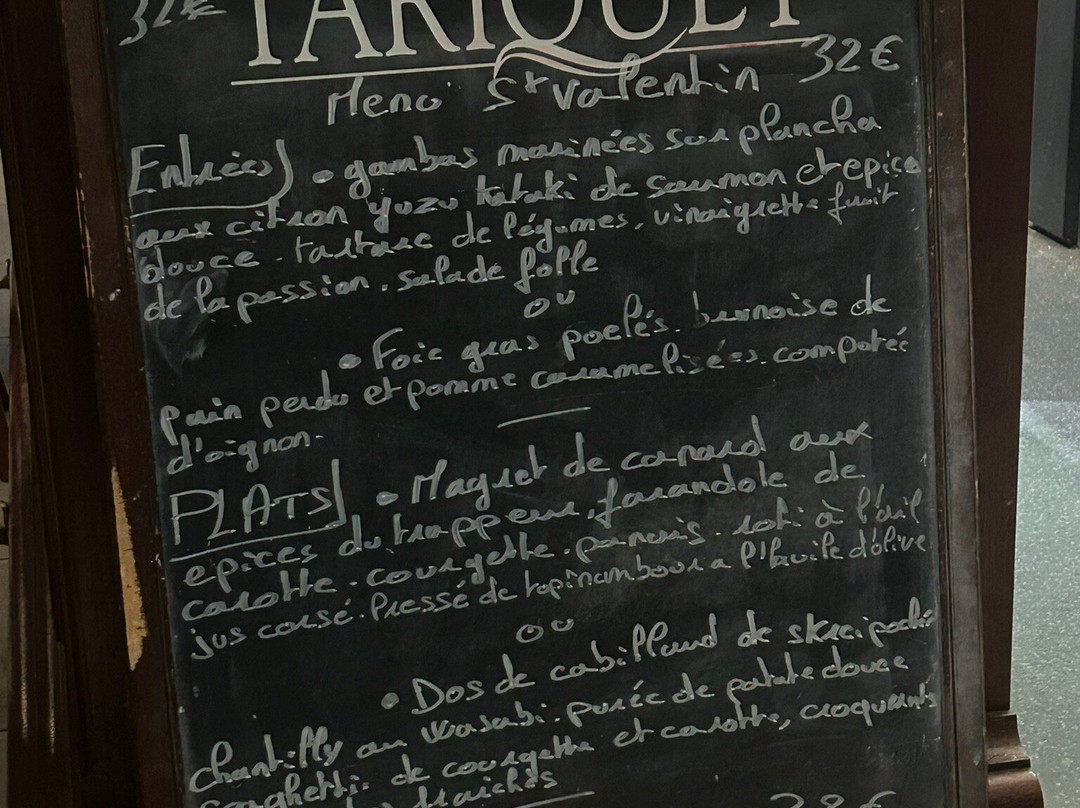 32€
TARIQUET
Menu St Valentin 32€
Entrées • gambas marinées sur plancha
aux citron yuzu tataki de saumon et epice
douce. tartare de légumes, vinaigrette fruit
de la passion. salade folle
ou
• Foie gras poelés. brunoise de
pain perdu et pomme caramelisées. compotée
d'oignon.
PLATS • Magret de canard aux
epices du trappeur, farandole de
carotte. courgette. panais. roti à l'ail
jus corsé. Pressé de topinambour a l'huile d'olive
ou
• Dos de cabillaud de skrei poché
chantilly au wasabi. purée de patate douce
spaghetti de courgette et carotte, croquants
fraiches